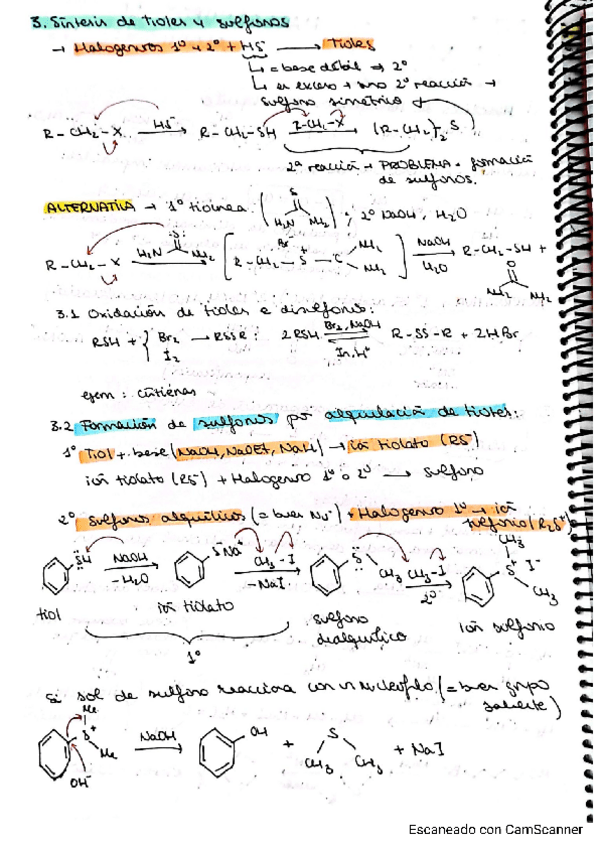 3. Síntesis de tioles y sulfuros
→ Halogenuros 1º y 2º + HS⁻ → Tioles
↳ = base débil → 2º
↳ en exceso → no 2º reacción →
sulfuro simétrico
R-CH₂-X HS⁻ → R-CH₂-SH R-CH₂-X → (R-CH₂)₂S
2º reacción → PROBLEMA = formación
de sulfuros.
ALTERNATIVA → 1º tiourea ( S H₂N NH₂ ) ; 2º NaOH, H₂O
R-CH₂-X H₂N S NH₂ → [ R-CH₂-S⁺-C Br NH₂ NH₂ ] NaOH H₂O → R-CH₂-SH +
O NH₂ NH₂
3.1 Oxidación de tioles a disulfuros:
RSH + { Br₂ I₂ → RSSR : 2RSH Br₂, NaOH R-SS-R + 2HBr
3.2 Formación de sulfuros por alquilación de tioles:
1º Tiol + base (NaOH, NaOEt, NaH) → ión tiolato (RS⁻)
ión tiolato (RS⁻) + Halogenuro 1º o 2º → sulfuro
2º sulfuros alquílicos (= buen Nu⁻) + Halogenuro 1º → ión
sulfonio (R₃S⁺)
SH NaOH -H₂O → S⁻Na⁺ CH₃-I -NaI → S CH₃ CH₃-I 2º → CH₃ S⁺ I⁻ CH₃
tiol ión tiolato sulfuro
dialquílico ión sulfonio
1º
Si sal de sulfuro reacciona con un nucleófilo (= buen grupo
saliente)
Me S⁺ Me OH⁻ NaOH → OH + S CH₃ CH₃ + NaI
Escaneado con CamScanner